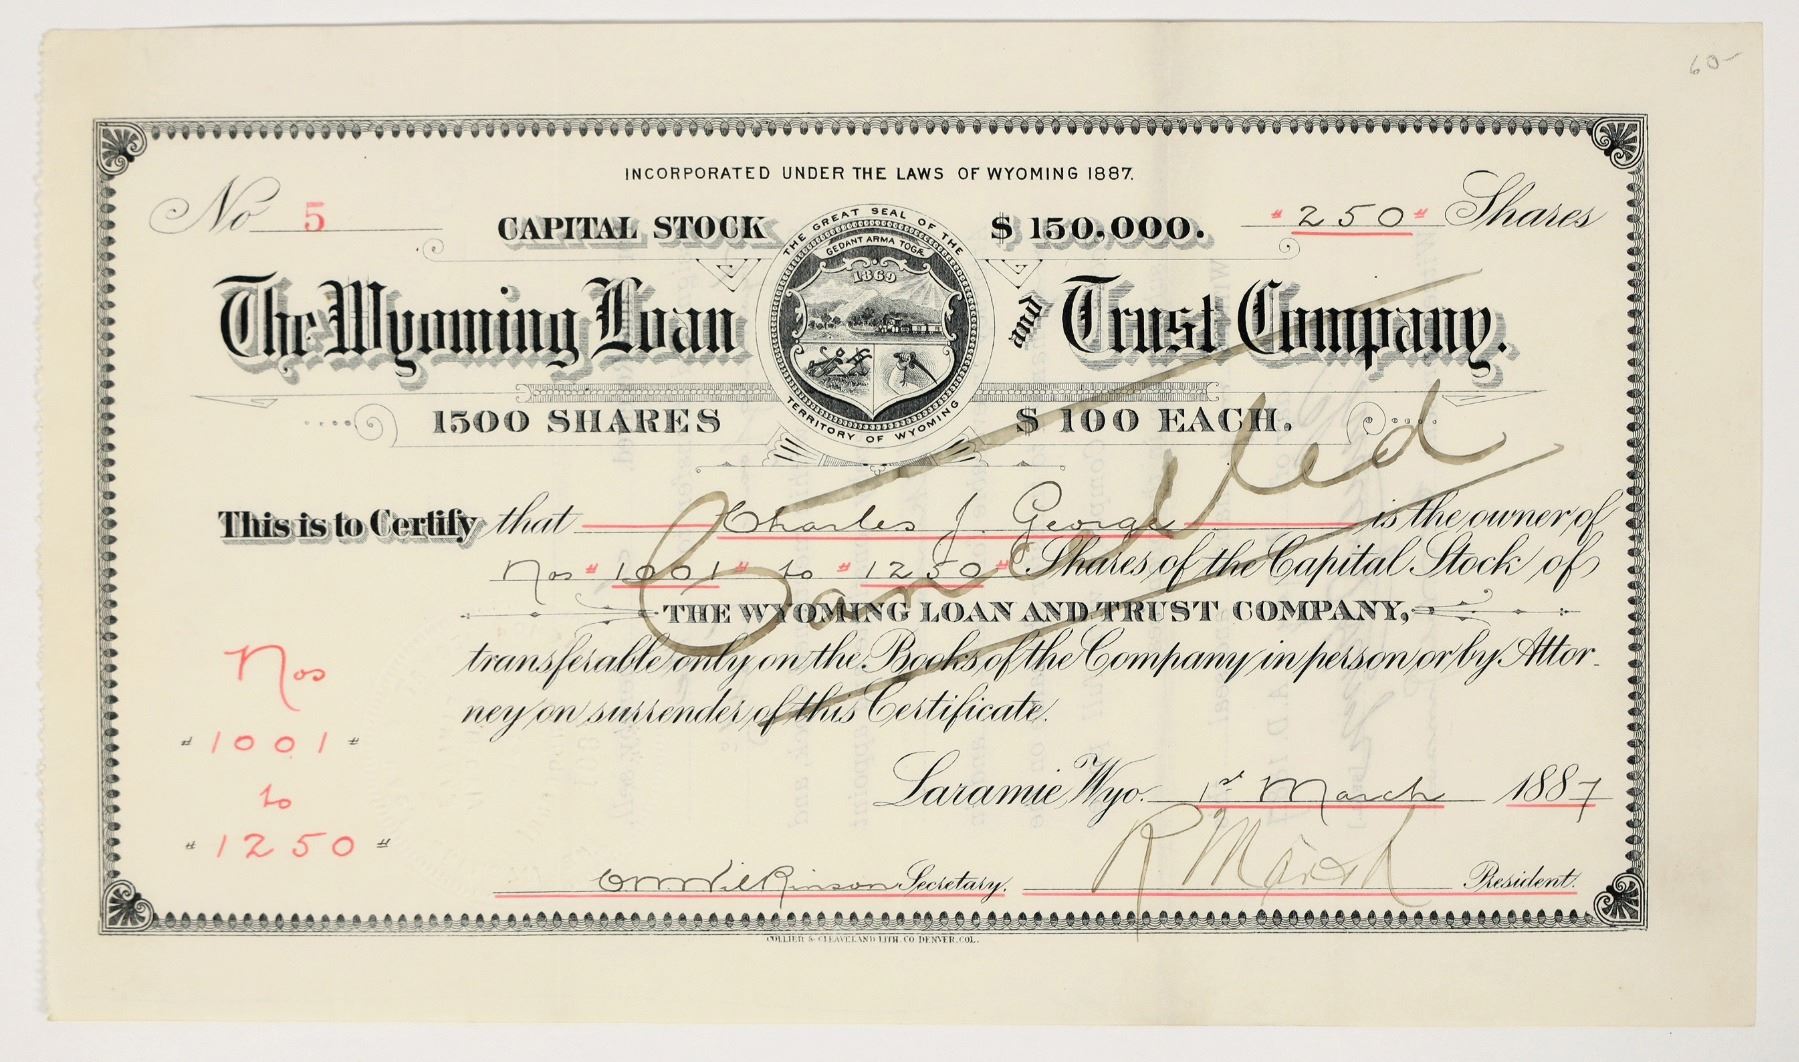 60-
INCORPORATED UNDER THE LAWS OF WYOMING 1887.
No 5
CAPITAL STOCK $ 150,000.
"250" Shares
THE GREAT SEAL OF THE
CEDANT ARMA TOGÆ
1869
TERRITORY OF WYOMING
The Wyoming Loan and Trust Company.
1500 SHARES $ 100 EACH.
Cancelled
This is to Certify that Charles J. George is the owner of
Nos "1001" to "1250" Shares of the Capital Stock of
THE WYOMING LOAN AND TRUST COMPANY,
transferable only on the Books of the Company in person or by Attor-
ney on surrender of this Certificate.
Nos
"1001"
to
"1250"
Laramie Wyo. 1st March 1887
Wilkinson Secretary. R Marsh President.
COLLIER & CLEAVELAND LITH. CO DENVER, COL.